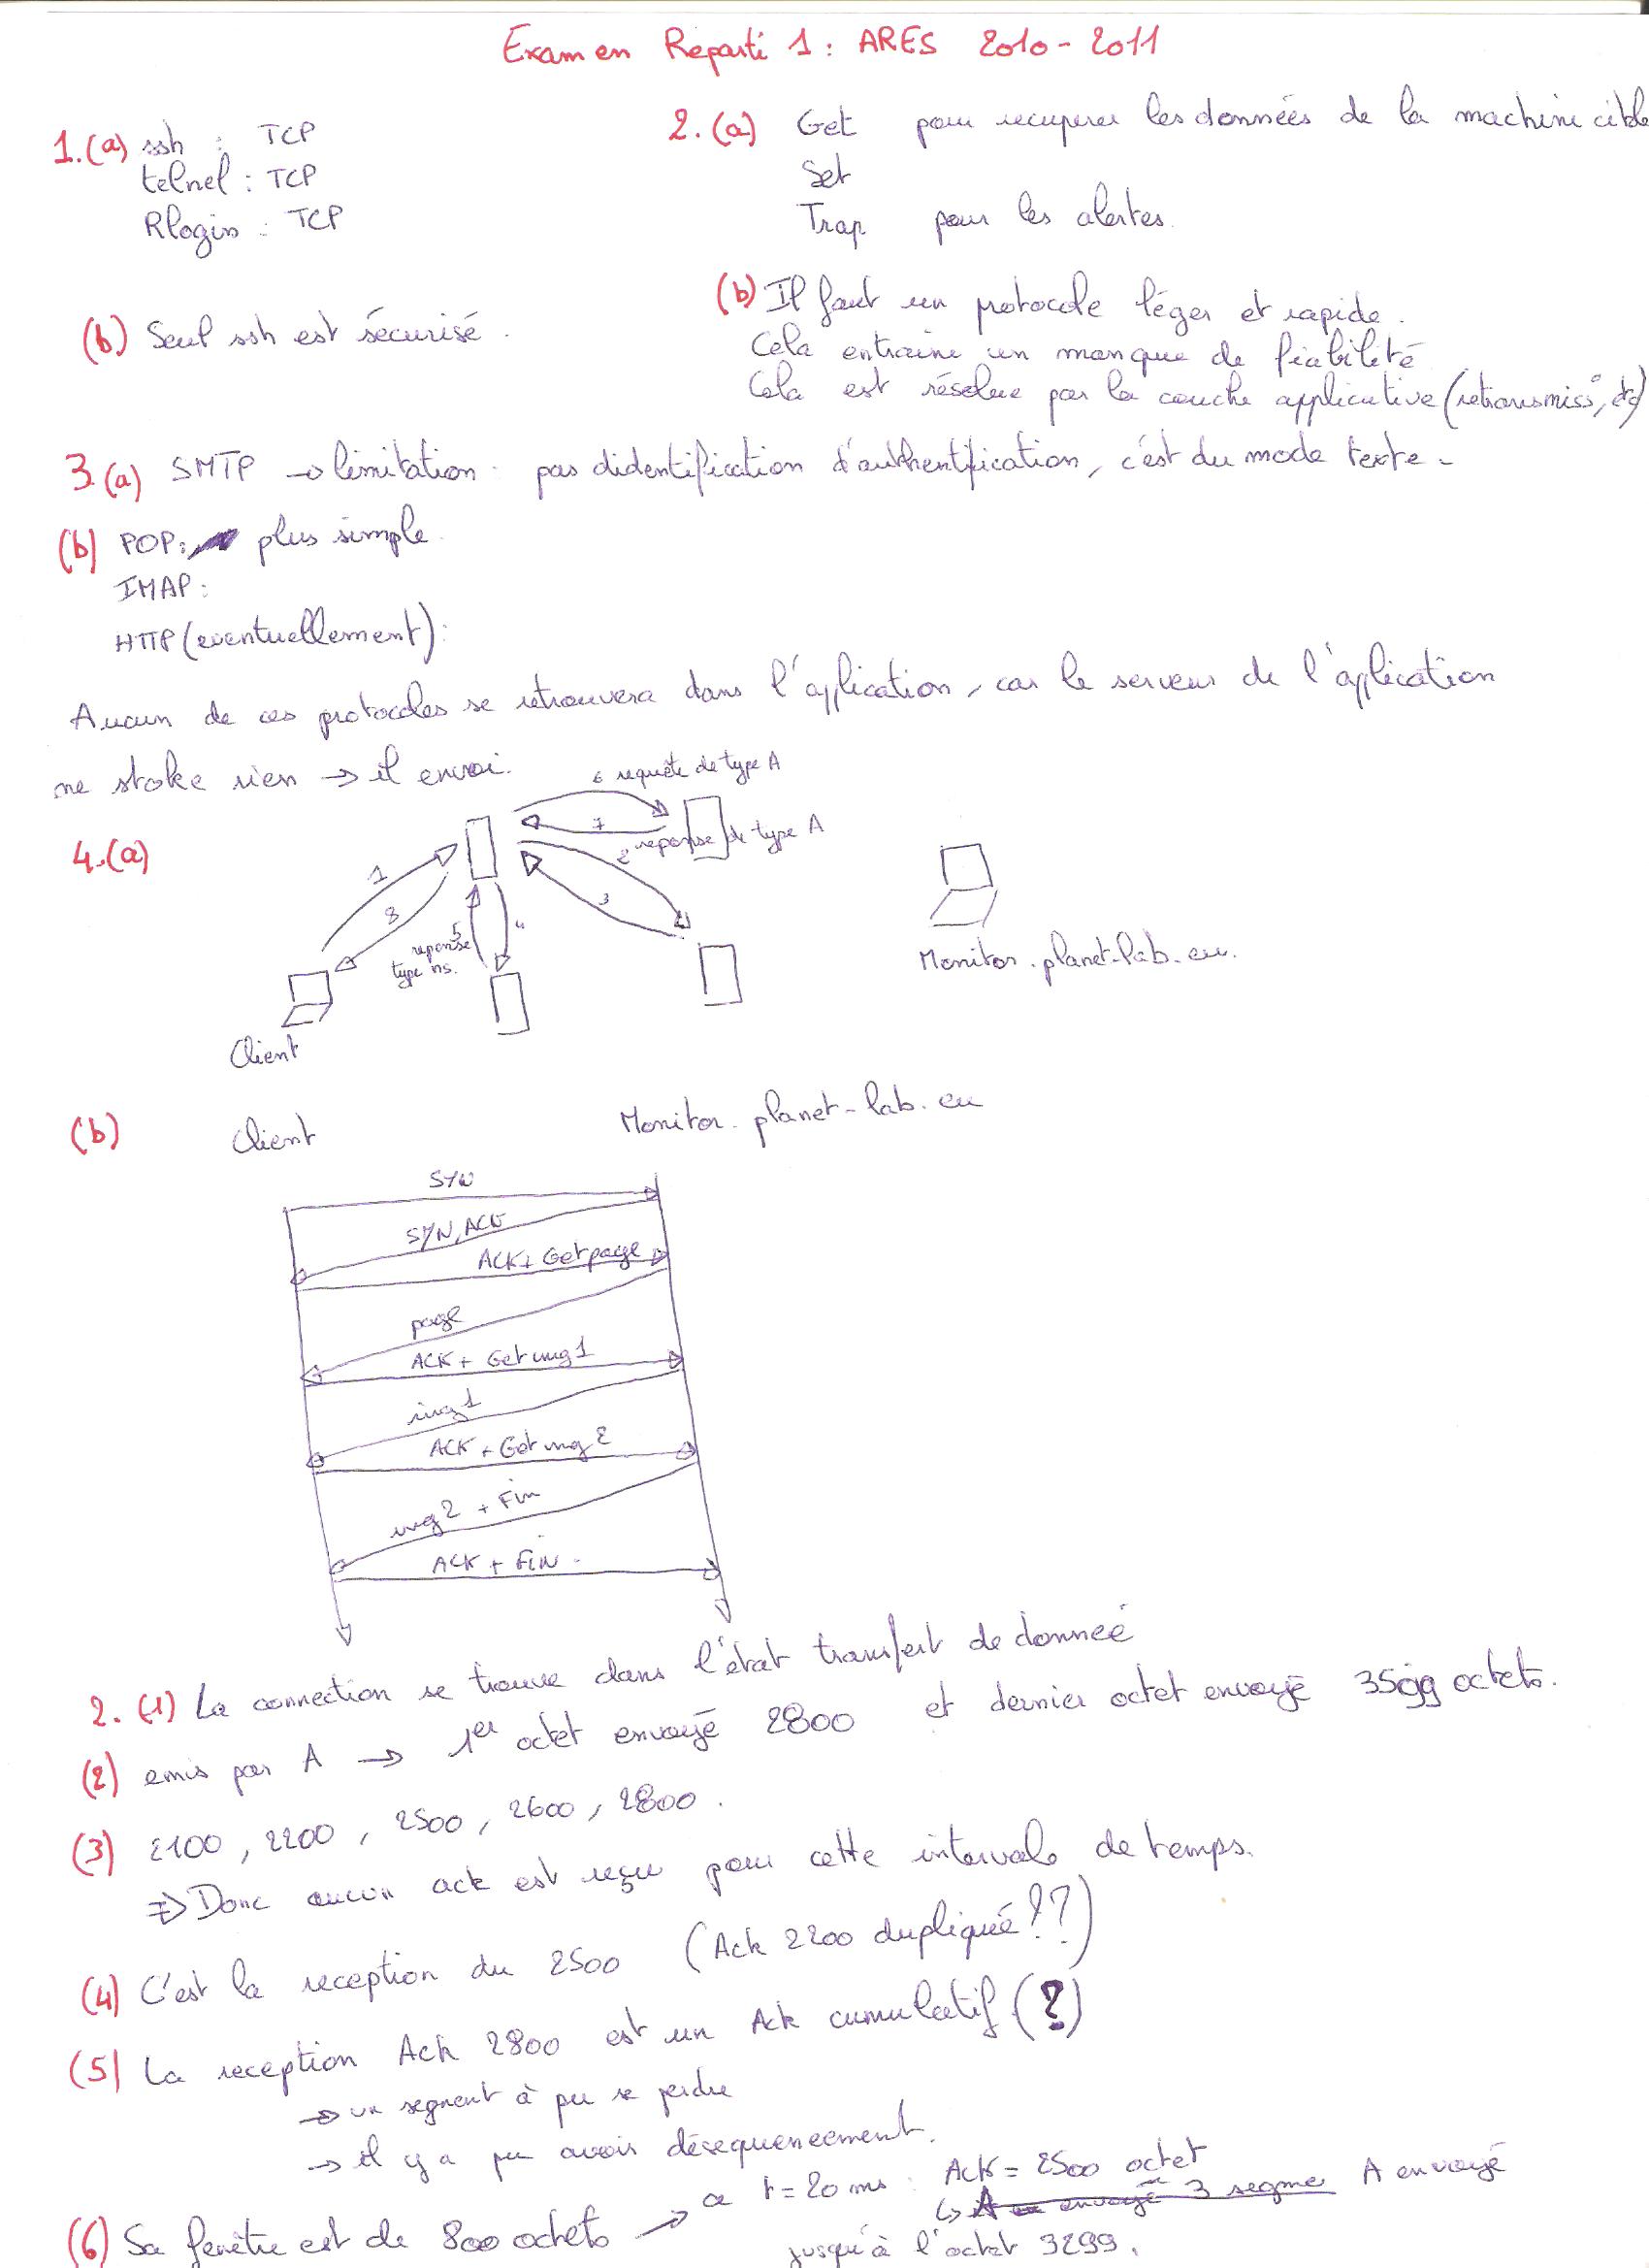 Examen Réparti 1 : ARES 2010 - 2011
1.(a) ssh : TCP
telnet : TCP
Rlogin : TCP
(b) Seul ssh est sécurisé.
2.(a) Get pour recuperer les données de la machine cible
Set
Trap pour les alertes.
(b) Il faut un protocole léger et rapide.
Cela entraine un manque de fiabilité
Cela est résolue par la couche applicative (retransmiss°, etc)
3.(a) SMTP → limitation : pas didentification d'authentification, c'est du mode texte.
(b) POP : plus simple.
IMAP :
HTTP (eventuellement) :
Aucun de ces protocoles se retrouvera dans l'application, car le serveur de l'aplication
ne stoke rien → il envoi.
4.(a)
6 requête de type A
7
reponse de type A
2
1
3
8
5
4
reponse
type ns.
Client
Monitor.planet-lab.eu.
(b) Client Monitor.planet-lab.eu
SYN
SYN, ACK
ACK + Get page
page
ACK + Get img1
img1
ACK + Get img2
img2 + Fin
ACK + FIN.
2. (1) La connection se trouve dans l'état transfert de donneé
(2) emis par A → 1er octet envoyé 2800 et dernier octet envoyé 3599 octets.
(3) 2100, 2200, 2500, 2600, 2800.
⇒ Donc aucun ack est reçu pour cette intervale de temps.
(4) C'est la reception du 2500 (Ack 2200 dupliquée !?)
(5) La reception Ack 2800 est un Ack cumulatif (?)
→ un segment à pu se perdre
→ il y a pu avoir déséquencement.
(6) Sa fenêtre est de 800 octets → a t = 20 ms : Ack = 2500 octet
↳ A envoyé 3 segme A envoyé
jusqu'à l'octet 3299.